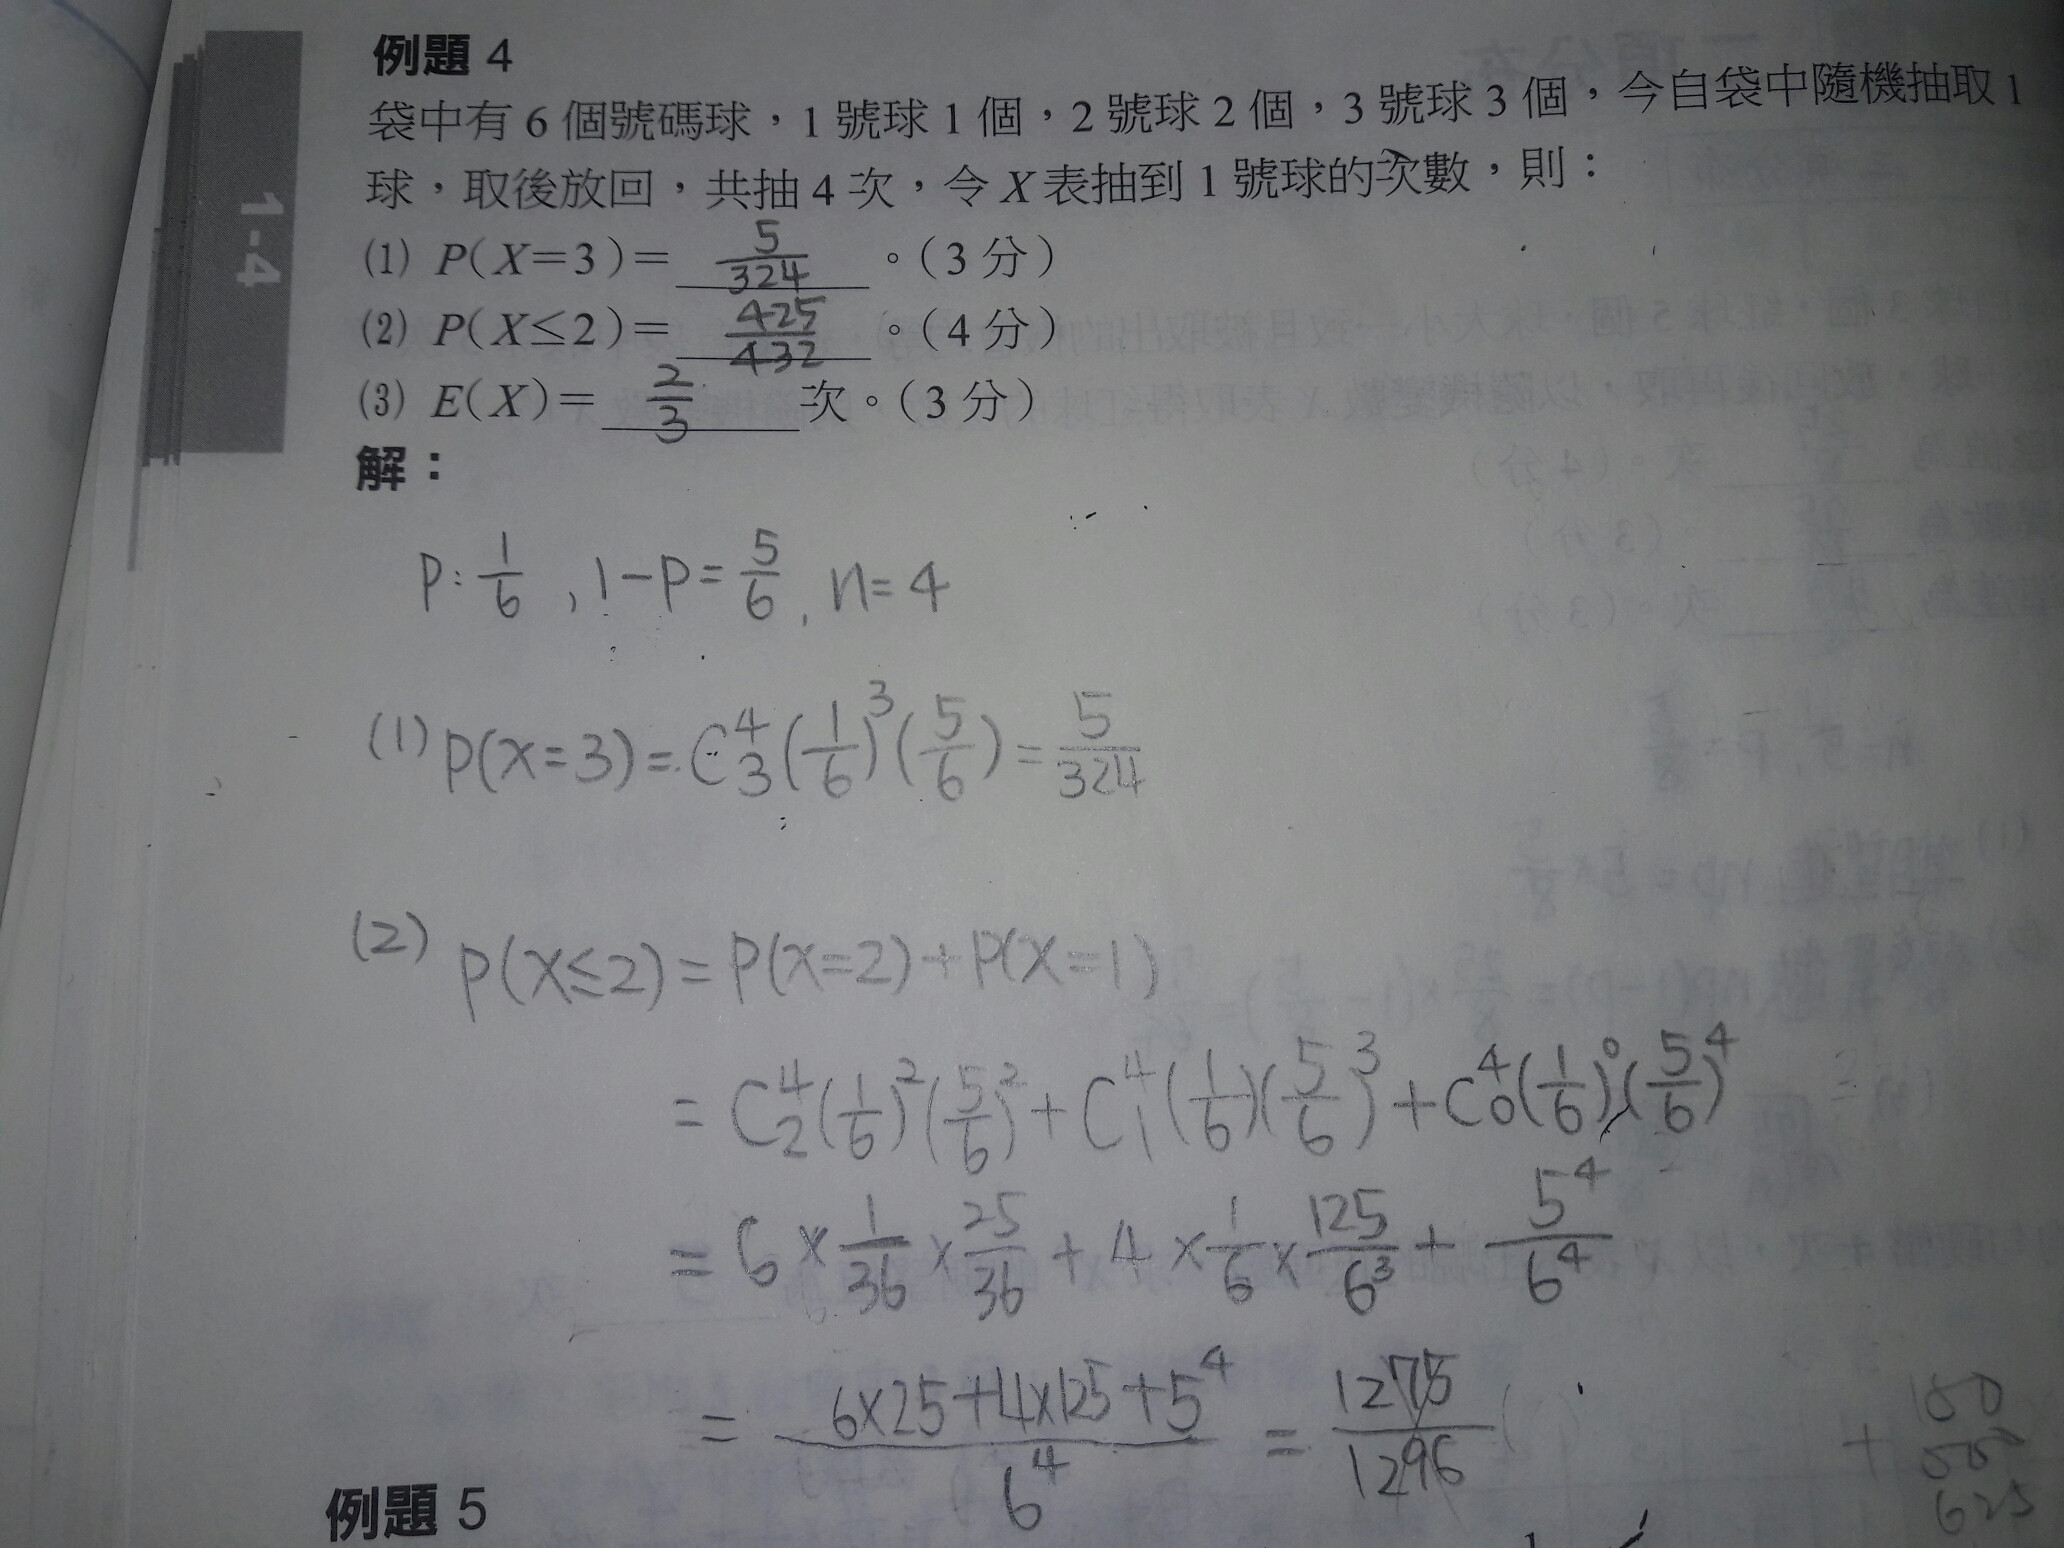 例題 4
袋中有 6 個號碼球，1 號球 1 個，2 號球 2 個，3 號球 3 個，今自袋中隨機抽取 1
球，取後放回，共抽 4 次，令 X 表抽到 1 號球的次數，則：
(1) P(X=3)= 5/324 。(3 分)
(2) P(X≤2)= 425/432 。(4 分)
(3) E(X)= 2/3 次。(3 分)
1-4
解：
P: 1/6 , 1-P = 5/6 , n=4
(1) P(x=3) = C⁴₃(1/6)³(5/6) = 5/324
(2) P(x≤2) = P(x=2)+P(x=1)
= C⁴₂(1/6)²(5/6)² + C⁴₁(1/6)(5/6)³ + C⁴₀(1/6)⁰(5/6)⁴
= 6 × 1/36 × 25/36 + 4 × 1/6 × 125/6³ + 5⁴/6⁴
= (6×25+4×125+5⁴)/6⁴ = 1275/1296
150
+ 500
625
例題 5